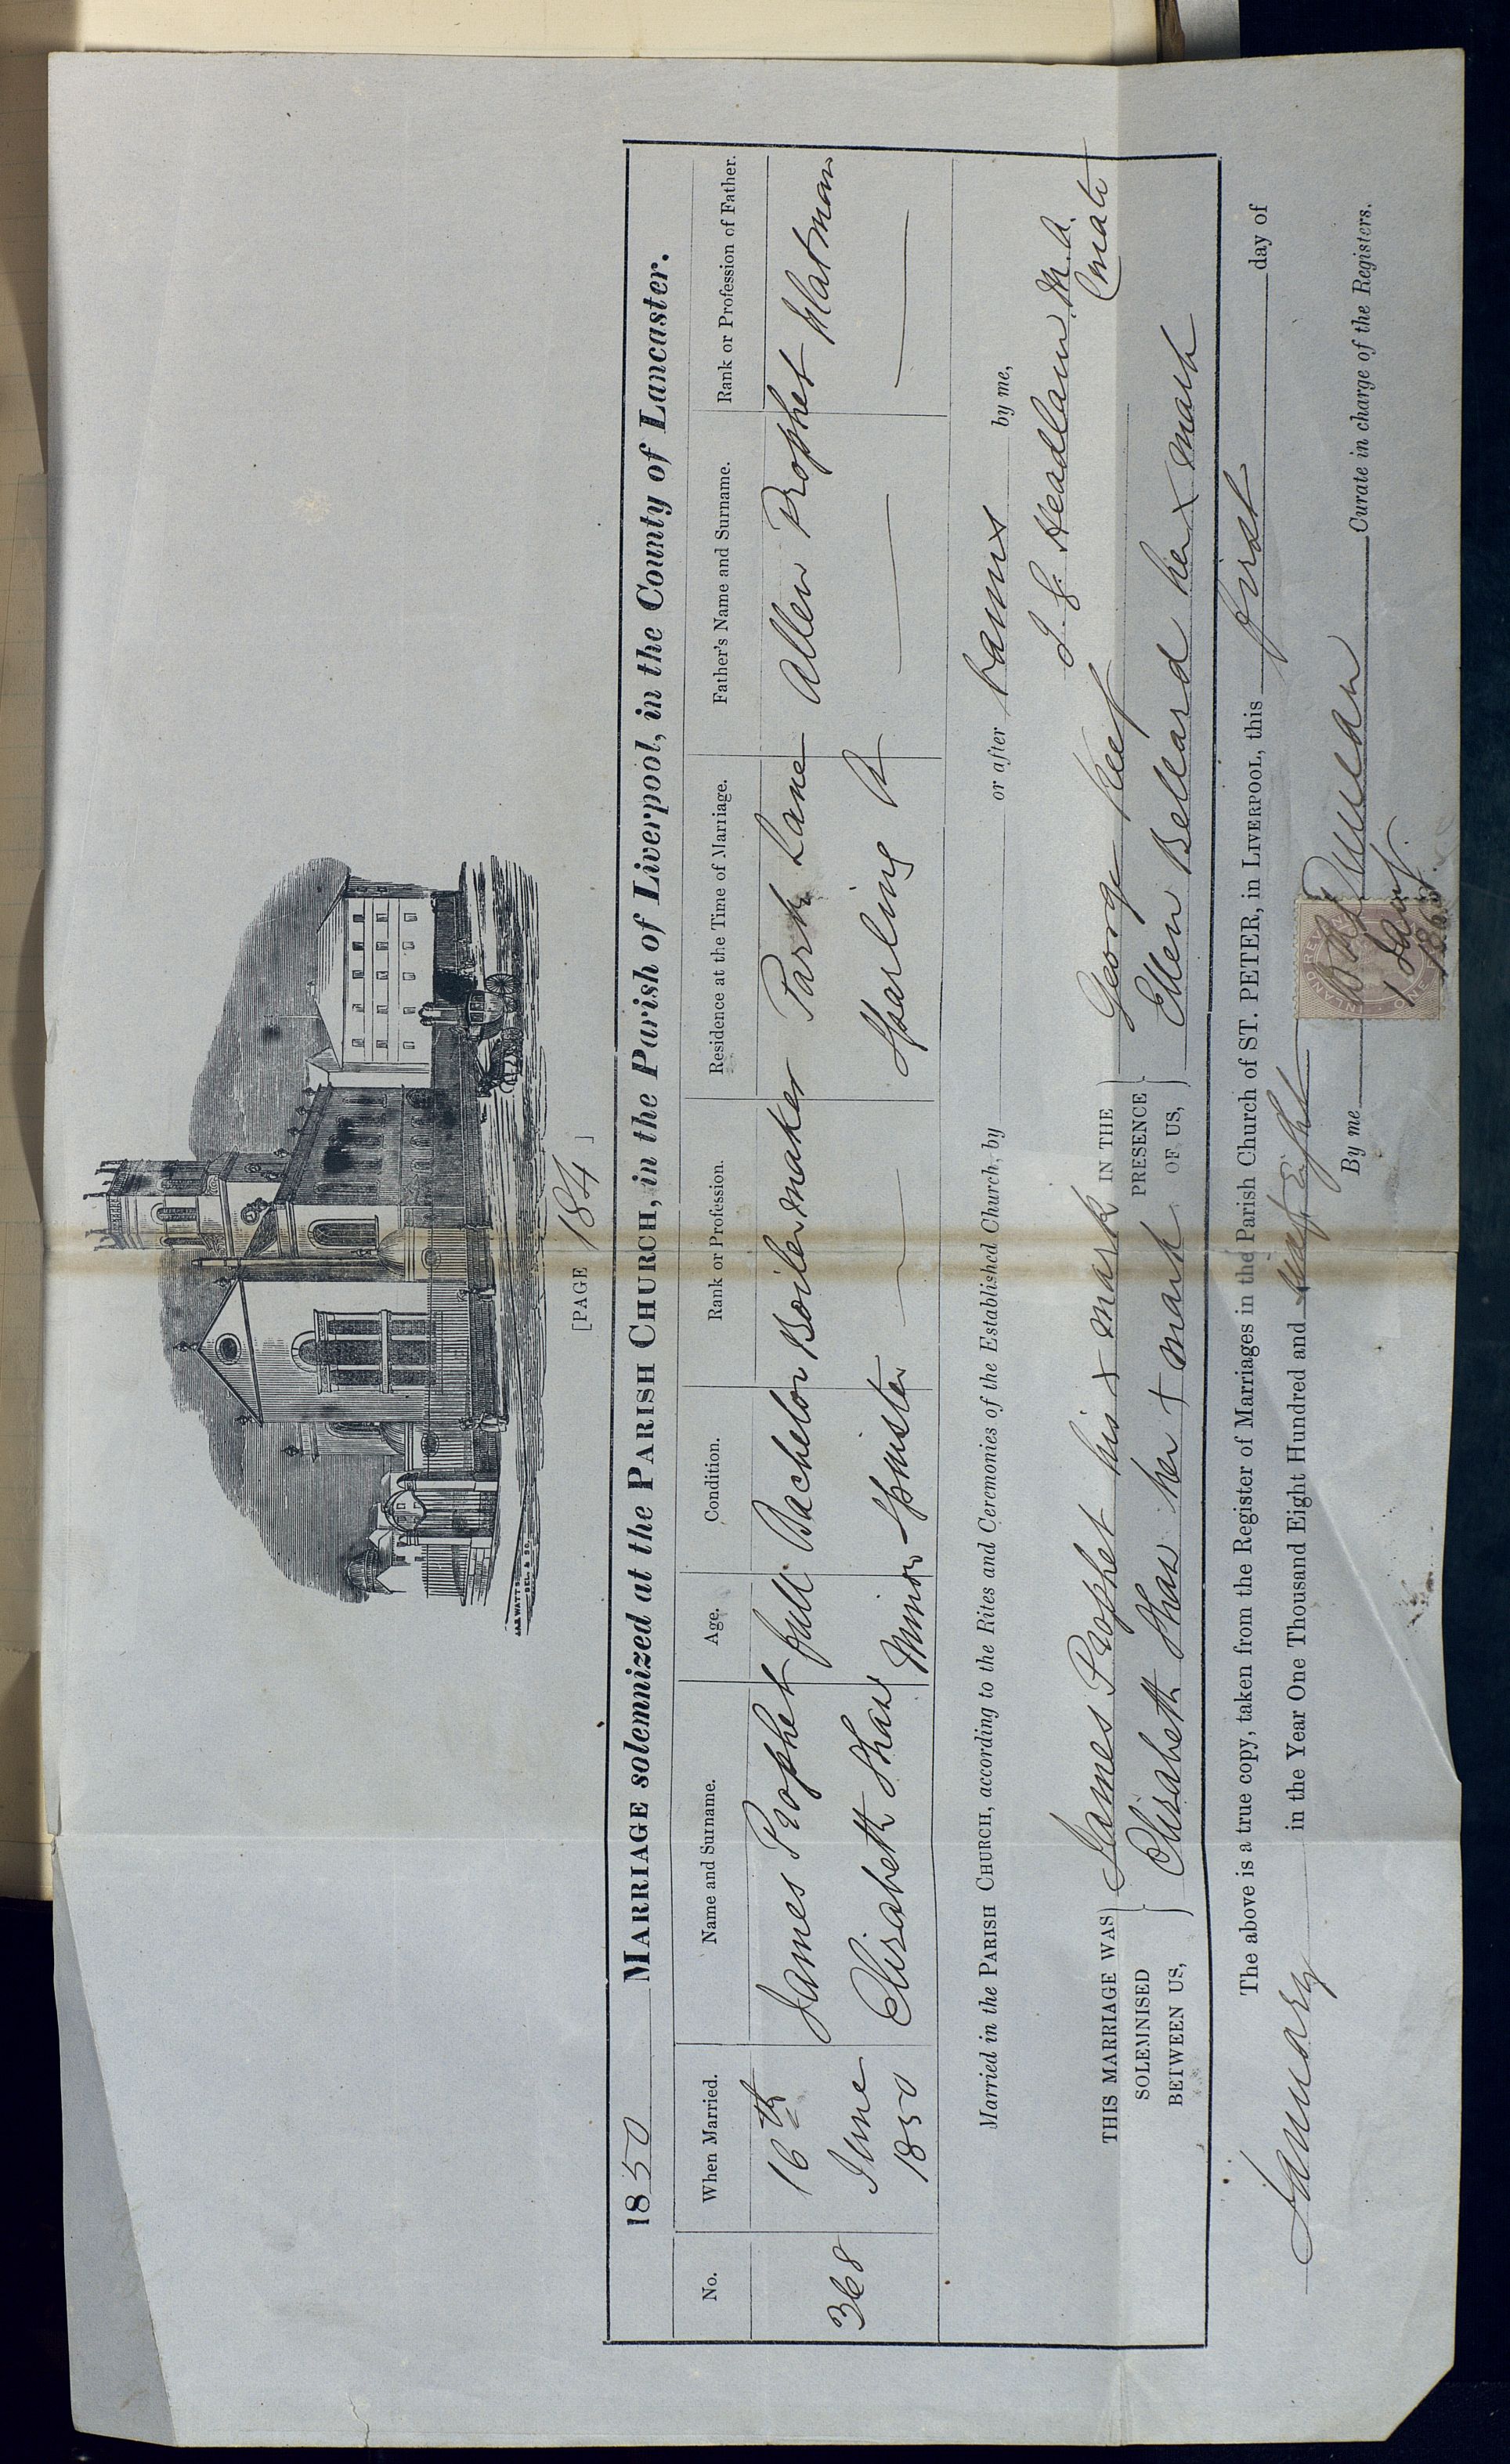 JAS. WATTS.
DEL. & SC.
[PAGE 184 ]
1850 MARRIAGE solemnized at the PARISH CHURCH, in the Parish of Liverpool, in the County of Lancaster.
No. When Married. Name and Surname. Age. Condition. Rank or Profession. Residence at the Time of Marriage. Father's Name and Surname. Rank or Profession of Father.
16th James Prophet full Bachelor Boilermaker Park Lane Allen Prophet Flatman
368 June
1850 Elisabeth Shaw Minor Spinster Sparling St
Married in the PARISH CHURCH, according to the Rites and Ceremonies of the Established Church, by or after banns by me,
J. G. Headlam M.A.
Curate
THIS MARRIAGE WAS SOLEMNISED BETWEEN US,
James Prophet his x mark
Elisabeth Shaw her + mark
IN THE PRESENCE OF US,
George Keef
Ellen Belleard her x mark
The above is a true copy, taken from the Register of Marriages in the Parish Church of ST. PETER, in LIVERPOOL, this first day of
January in the Year One Thousand Eight Hundred and Sixty Eight
By me Duncan Curate in charge of the Registers.
INLAND REVENUE
ONE
1 Jany.
1868.